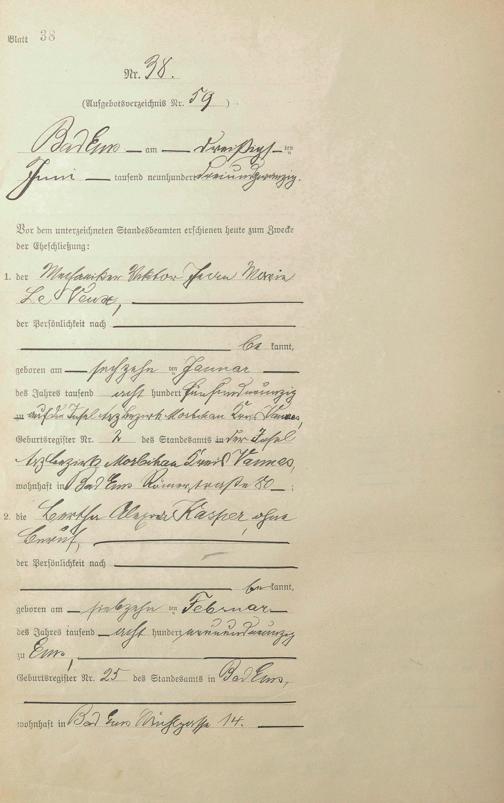 Blatt 38
Nr. 38.
(Aufgebotsverzeichnis Nr. 59 )
Bad Ems am dreißigsten
Juni tausend neunhundert dreiundzwanzig.
Vor dem unterzeichneten Standesbeamten erschienen heute zum Zwecke
der Eheschließung:
1. der Mechaniker Viktor Marie
Le
der Persönlichkeit nach
be kannt,
geboren am sechzehn ten Januar
des Jahres tausend acht hundert fünfundneunzig
zu auf der Insel Arz Bezirk Morbihan Kreis Vannes,
Geburtsregister Nr. 2 des Standesamts in der Insel
Arz Bezirk Morbihan Kreis Vannes,
wohnhaft in Bad Ems Römerstraße 80 ;
2. die Bertha Kasper, ohne
Beruf,
der Persönlichkeit nach
be kannt,
geboren am siebzehn ten Februar
des Jahres tausend acht hundert neunundneunzig
zu Ems,
Geburtsregister Nr. 25 des Standesamts in Bad Ems,
wohnhaft in Bad Ems 14.